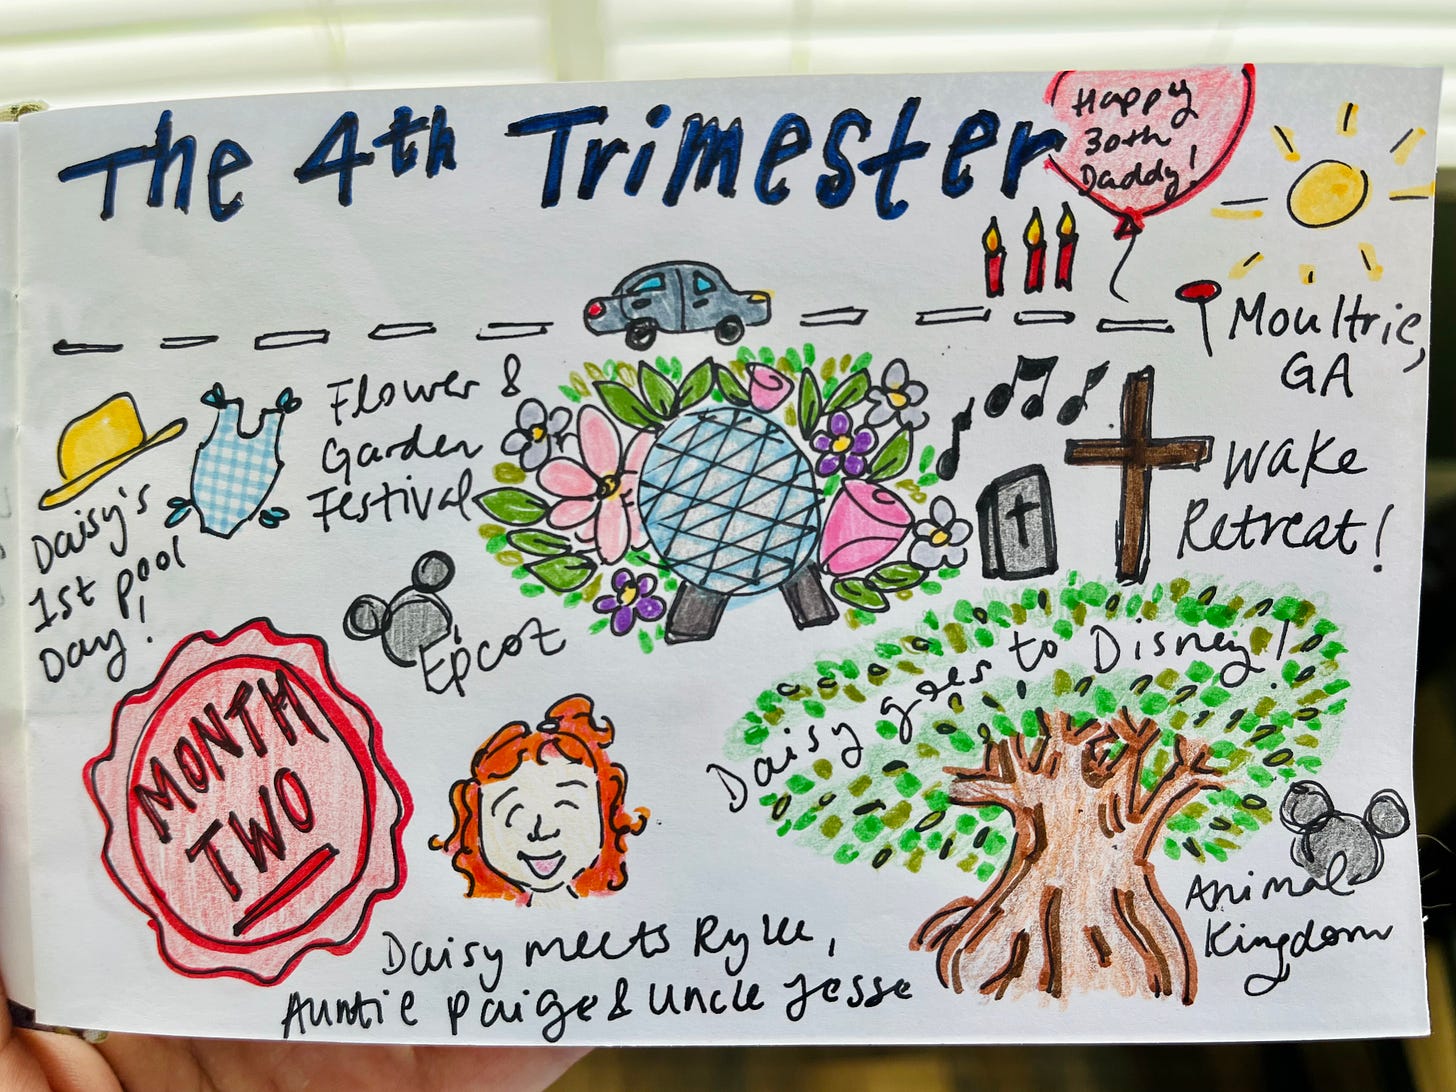 The 4th Trimester
Happy
30th
Daddy!
Moultrie,
GA
Flower &
Garden
Festival
Epcot
Wake
Retreat!
Daisy's
1st pool
Day!
MONTH
TWO
Daisy goes to Disney!
Animal
Kingdom
Daisy meets Rylee,
Auntie Paige & Uncle Jesse